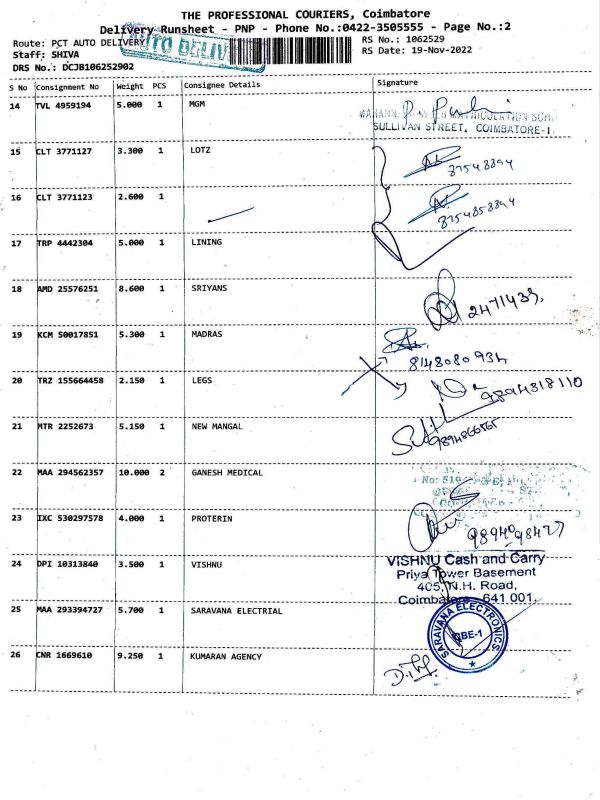 THE PROFESSIONAL COURIERS, Coimbatore
Delivery Runsheet - PNP - Phone No.:0422-3505555 - Page No.:2
Route: PCT AUTO DELIVERY
AUTO DELIV
RS No.: 1062529
Staff: SHIVA
RS Date: 19-Nov-2022
DRS No.: DCJB106252902
S No Consignment No Weight PCS Consignee Details Signature
14 TVL 4959194 5.000 1 MGM
SULLIVAN STREET, COIMBATORE-1.
15 CLT 3771127 3.300 1 LOTZ
16 CLT 3771123 2.600 1
8754858894
17 TRP 4442304 5.000 1 LINING
18 AMD 25576251 8.600 1 SRIYANS
2471439.
19 KCM 50017851 5.300 1 MADRAS
8148080934
20 TRZ 155664458 2.150 1 LEGS
9894318110
21 MTR 2252673 5.150 1 NEW MANGAL
22 MAA 294562357 10.000 2 GANESH MEDICAL
23 IXC 530297578 4.000 1 PROTERIN
9894098427
24 DPI 10313840 3.500 1 VISHNU
VISHNU Cash and Carry
Priya Tower Basement
405, N.H. Road,
Coimbatore - 641 001.
25 MAA 293394727 5.700 1 SARAVANA ELECTRIAL
SARAVANA ELECTRONICS
CBE-1
26 CNR 1669610 9.250 1 KUMARAN AGENCY